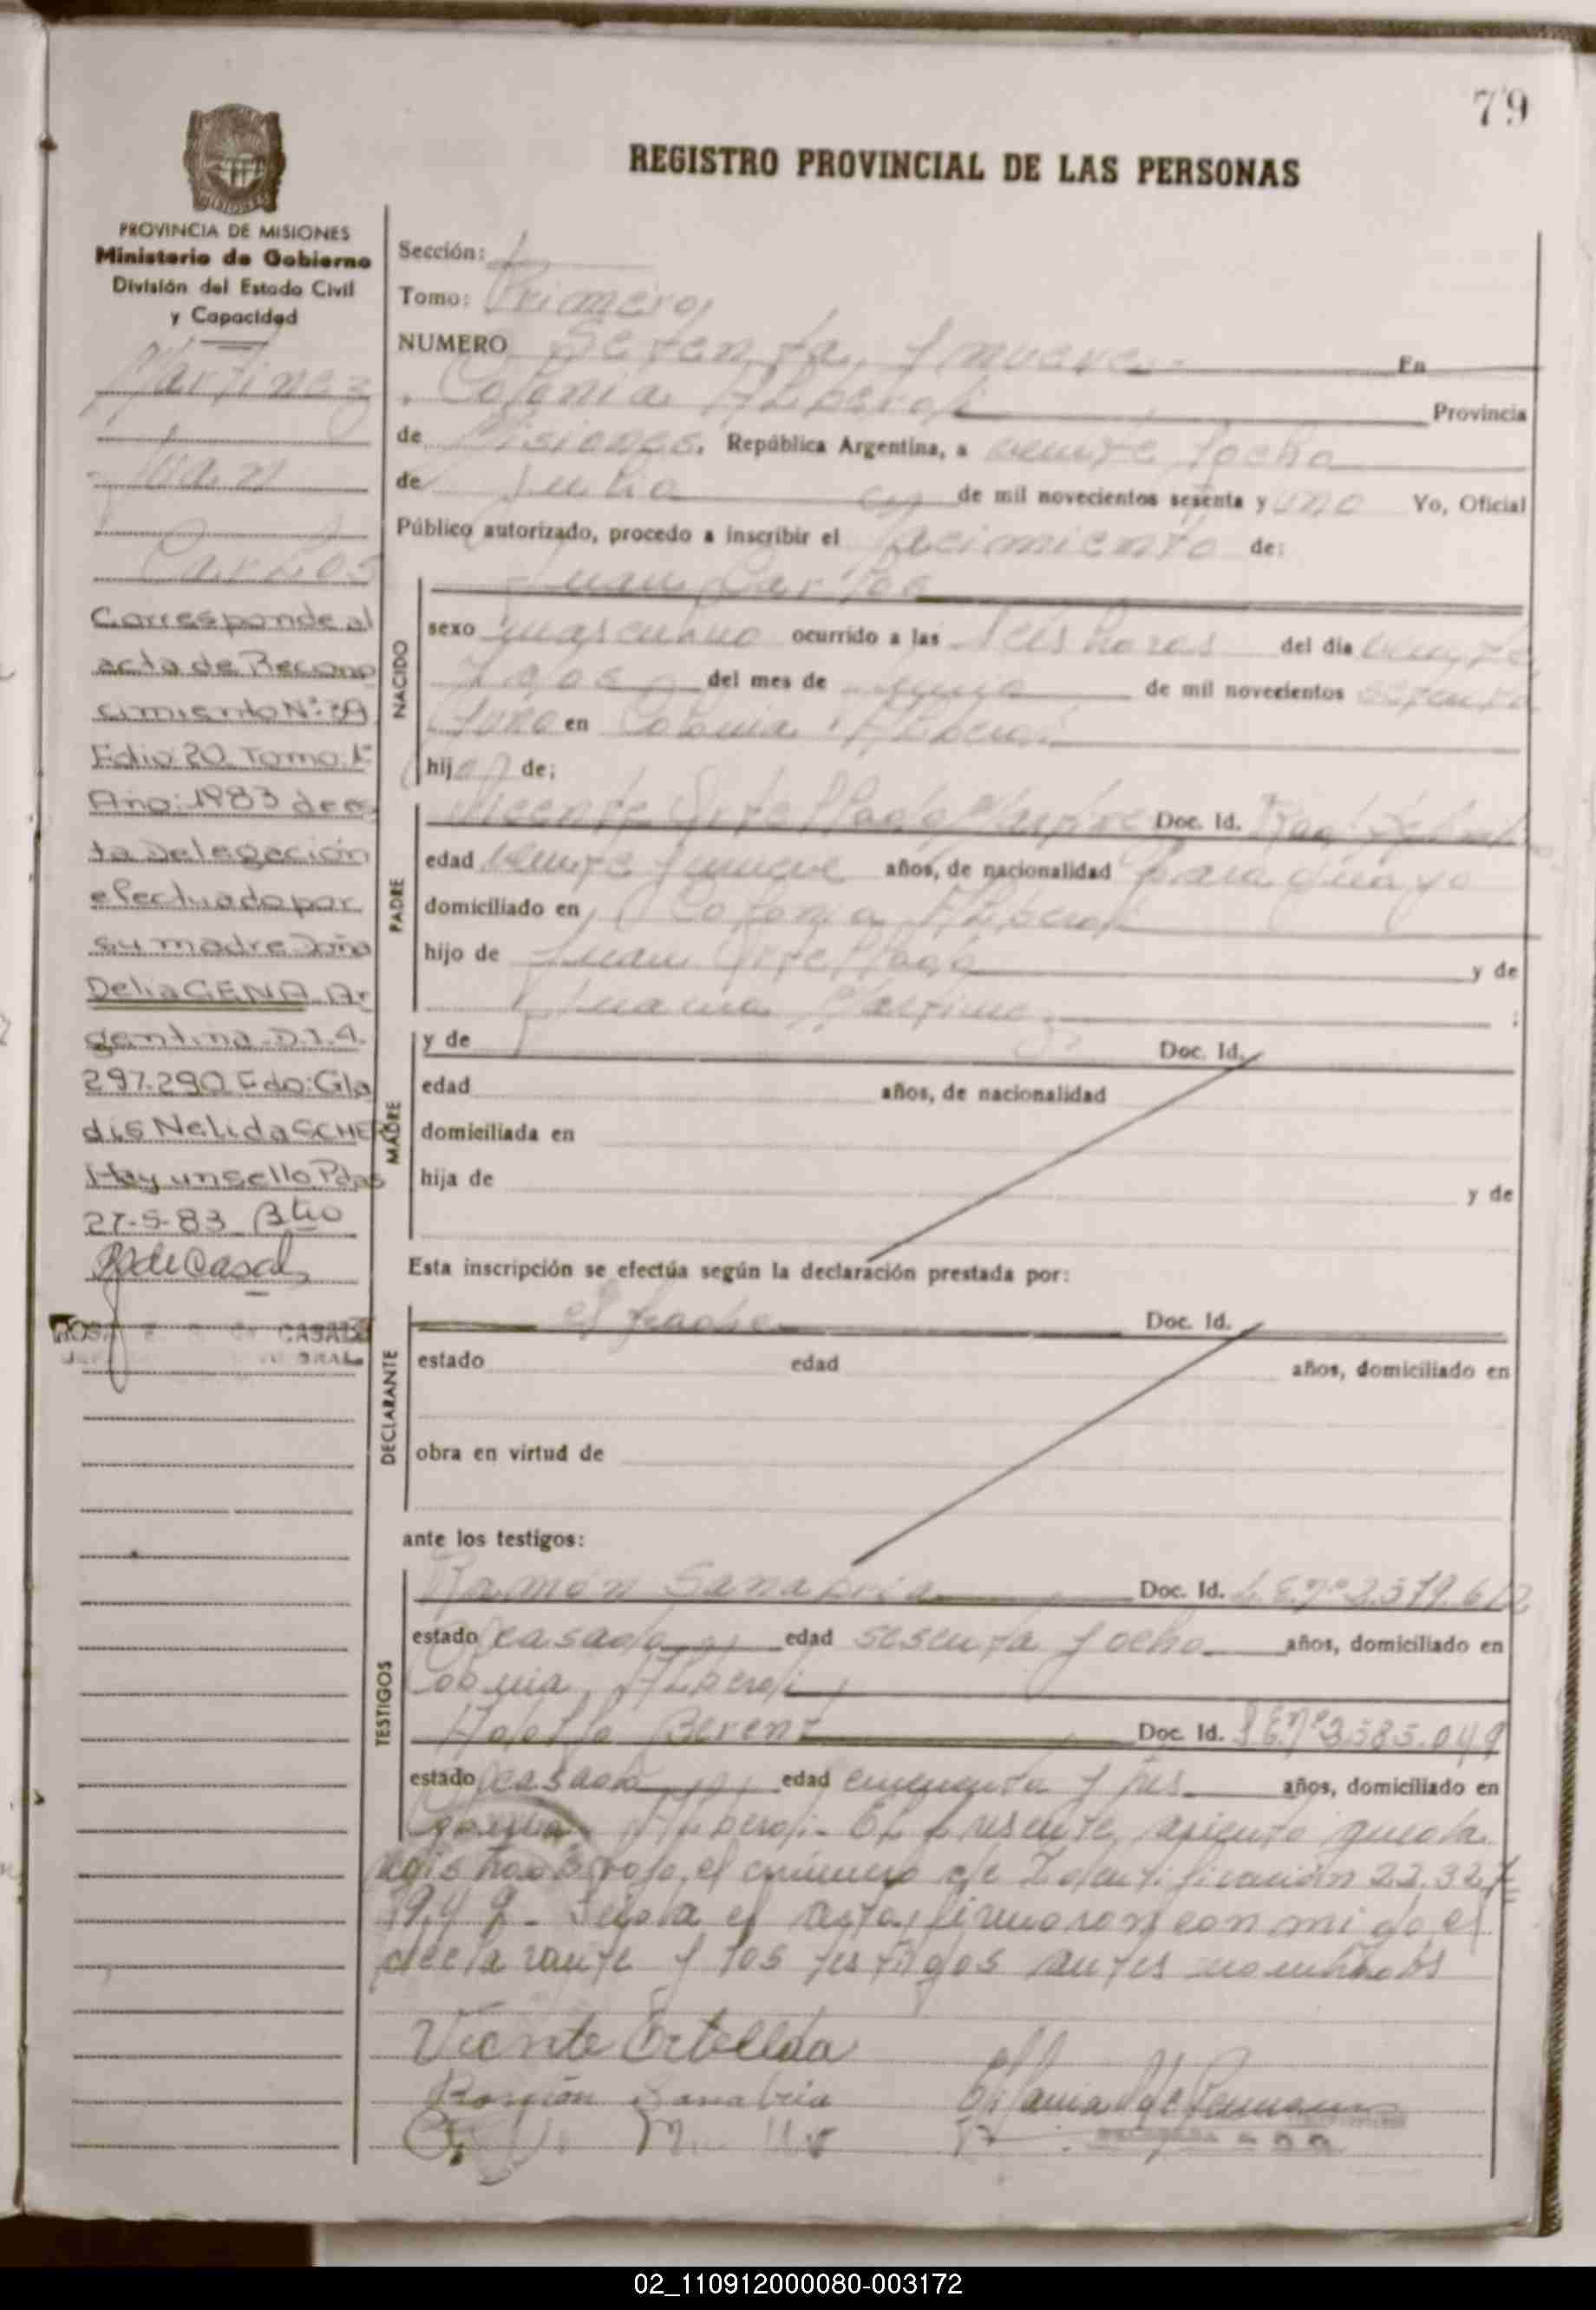 79
REGISTRO PROVINCIAL DE LAS PERSONAS
PROVINCIA DE MISIONES
Ministerio de Gobierno
División del Estado Civil
y Capacidad
Martinez
Juan
Carlos
Corresponde al
acta de Recono
cimiento Nº:
Folio 20 Tomo 1º
Año: 1983 de es
ta Delegación
efectuado por
su madre Doña
Delia GENA Ar
gentina D.I. 4.
297.290 Fdo: Gla
dis Nelida SCHER
Hay un sello Pdas
27-5-83
de Casals
Sección:
Tomo: Primero
NUMERO Setenta y nueve En
Colonia Alberdi Provincia
de Misiones, República Argentina, a veinte y ocho
de Julio de mil novecientos sesenta y uno Yo, Oficial
Público autorizado, procedo a inscribir el Nacimiento de:
NACIDO
Juan Carlos
sexo masculino ocurrido a las seis horas del día veinte
y dos del mes de de mil novecientos sesenta
y uno en Colonia Alberdi
hijo de:
PADRE
Vicente Ortellado Martinez Doc. Id.
edad veinte y nueve años, de nacionalidad paraguayo
domiciliado en Colonia Alberdi
hijo de Juan Ortellado y de
Juana Martinez ;
MADRE
y de Doc. Id.
edad años, de nacionalidad
domiciliada en
hija de y de
Esta inscripción se efectúa según la declaración prestada por:
DECLARANTE
el padre Doc. Id.
estado edad años, domiciliado en
obra en virtud de
ante los testigos:
TESTIGOS
Ramón Sanabria Doc. Id. L.E.nº 2.579.612
estado casado edad sesenta y ocho años, domiciliado en
Colonia Alberdi
Adolfo Berent Doc. Id. L.E.nº 3.585.049
estado casado edad cincuenta y tres años, domiciliado en
Colonia Alberdi. El presente asiento queda
registrado bajo el número de Identificación
Leida el acta, firmaron conmigo el
declarante y los testigos antes nombrados
Vicente Ortellado
Ramón Sanabria
02_110912000080-003172